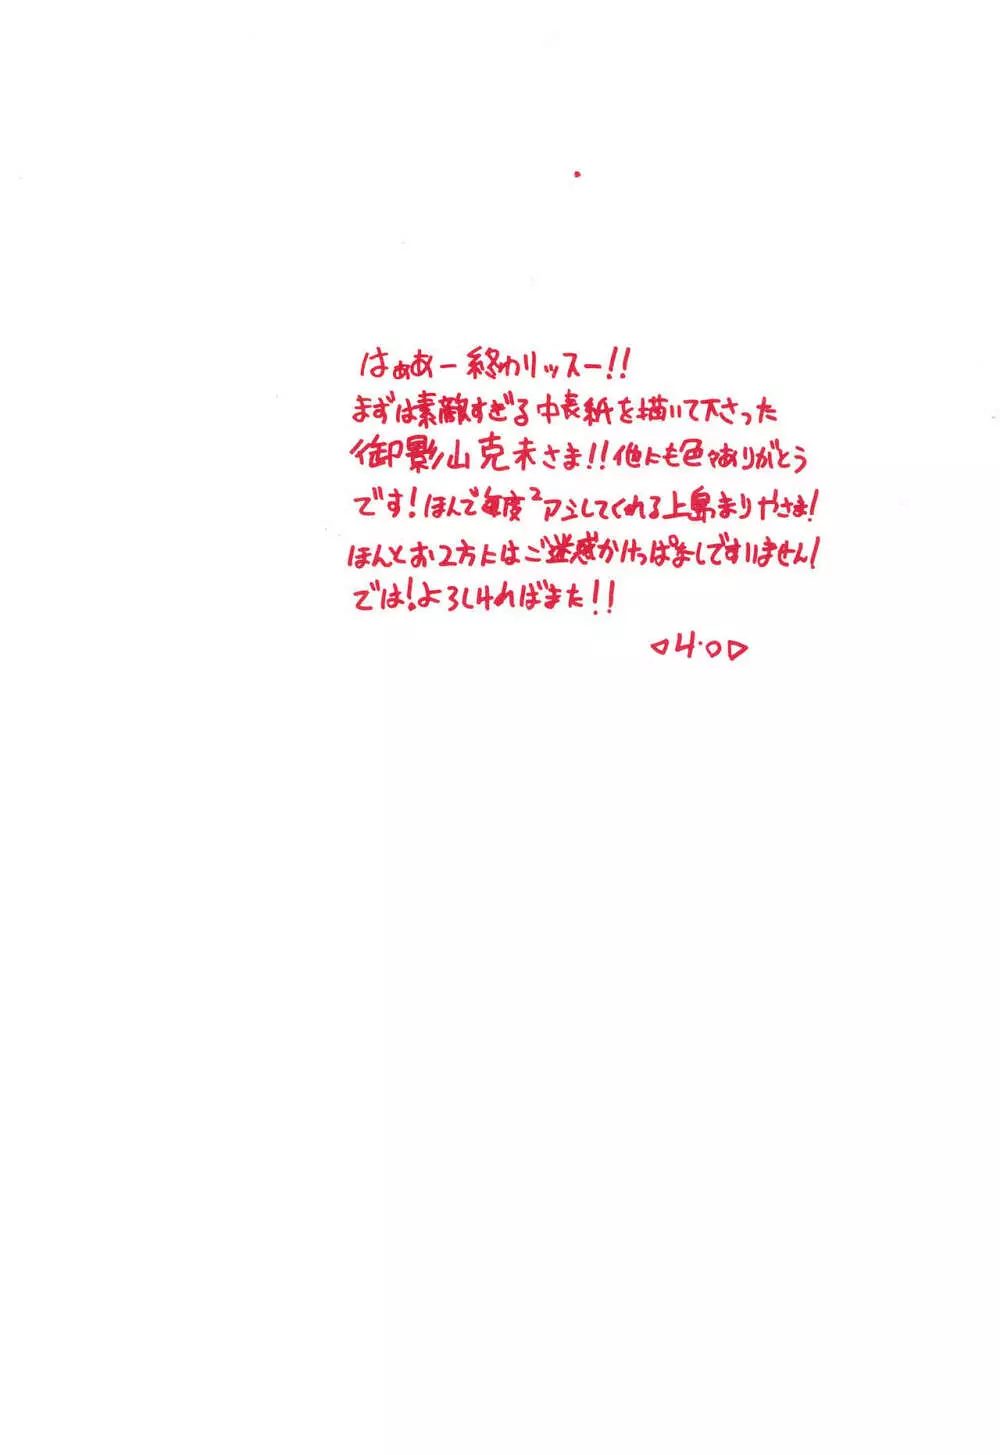 はぁあー終わりッスー!!
まずは素敵すぎる中表紙を描いて下さった
御影山克未さま!!他にも色々ありがとう
です!ほんで毎度²アシしてくれる上島まりやさま!
ほんとお2方にはご迷惑かけっぱなしですいません!
では!よろしければまた!!
◁4・0▷